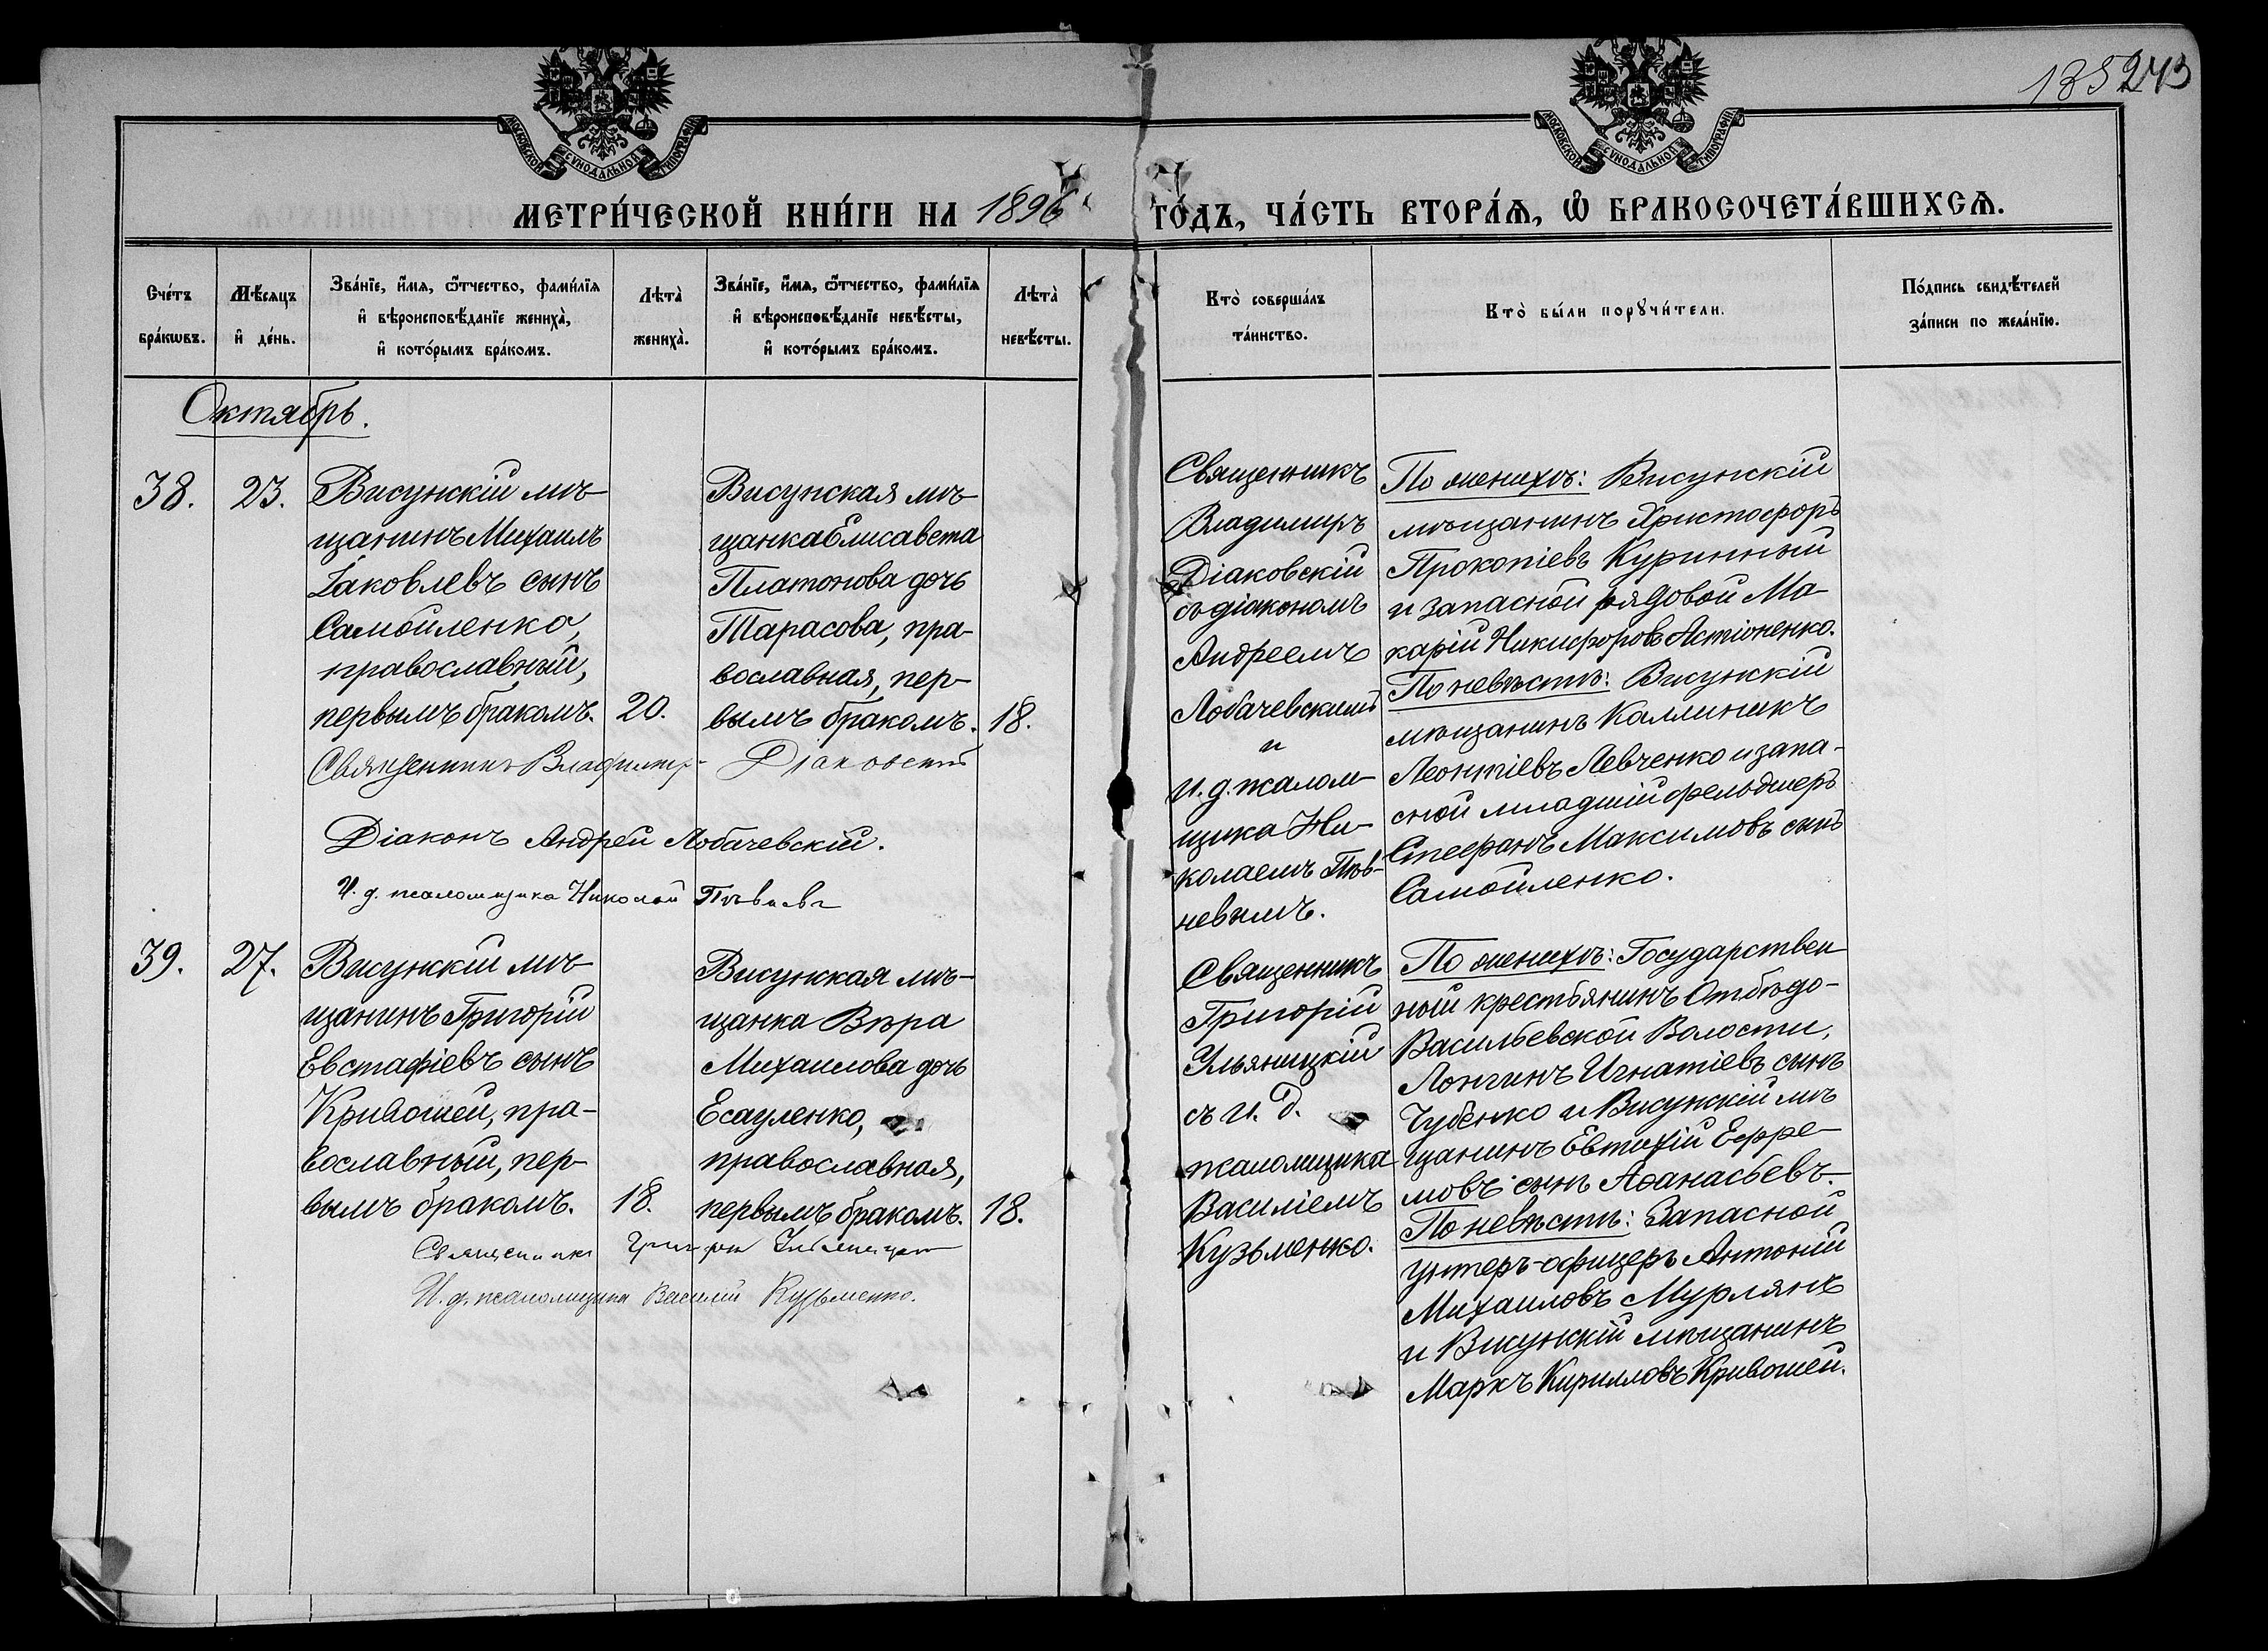 135 243
МОСКОВСКОЙ СѴНОДАЛЬНОЙ ТИПОГРАФІИ
МОСКОВСКОЙ СѴНОДАЛЬНОЙ ТИПОГРАФІИ
МЕТРИ́ЧЕСКОЙ КНИ́ГИ НА 1896 ГО́ДЪ, ЧА́СТЬ ВТОРА́Ѧ, Ѡ҆ БРАКОСОЧЕТА́ВШИХСѦ.
Сче́тъ
бра́кѡвъ.
Мѣ́сяцъ
и҆ де́нь.
Зва́нїе, и҆́мѧ, ѻ҆́тчество, фами́лїѧ
и҆ вѣроисповѣ́данїе жениха̀,
и҆ кото́рымъ бра́комъ.
Лѣта̀
жениха̀.
Зва́нїе, и҆́мѧ, ѻ҆́тчество, фами́лїѧ
и҆ вѣроисповѣ́данїе невѣ́сты,
и҆ кото́рымъ бра́комъ.
Лѣта̀
невѣ́сты.
Кто̀ соверша́лъ
та́инство.
Кто̀ бы́ли порꙋчи́тели.
По́дпись свидѣ́телей
за́писи по жела́нїю.
Октябрь.
38.
23.
Висунскій мѣ-
щанинъ Михаилъ
Іаковлевъ сынъ
Самойленко,
православный,
первымъ бракомъ.
20.
Висунская мѣ-
щанка Елисавета
Платонова дочь
Тарасова, пра-
вославная, пер-
вымъ бракомъ.
18.
Священникъ
Владимиръ
Діаковскій
съ діакономъ
Андреемъ
Лобачевскимъ
и
и. д. псалом-
щика Ни-
колаемъ Пѣв-
невымъ.
По женихѣ: Висунскій
мѣщанинъ Христофоръ
Прокопіевъ Куринный
и запасной рядовой Ма-
карій Никифоровъ Астіоненко.
По невѣстѣ: Висунскій
мѣщанинъ Каллиникъ
Леонтіевъ Левченко и запа-
сной младшій фельдшеръ
Стефанъ Максимовъ сынъ
Самойленко.
Священникъ Владимиръ Діаковскій
Діаконъ Андрей Лобачевскій.
И. д. псаломщика Николай
39.
27.
Висунскій мѣ-
щанинъ Григорій
Евстафіевъ сынъ
Кривошей, пра-
вославный, пер-
вымъ бракомъ.
18.
Висунская мѣ-
щанка Вѣра
Михаилова дочь
Есауленко,
православная,
первымъ бракомъ.
18.
Священникъ
Григорій
Ульяницкій
съ и. д.
псаломщика
Василіемъ
Кузьменко.
По женихѣ: Государствен
ный крестьянинъ Отбѣдо-
Васильевской Волости,
Лонгинъ Игнатіевъ сынъ
Чубенко и Висунскій мѣ
щанинъ Евтихій Ефре-
мовъ сынъ Аѳанасьевъ.
По невѣстѣ: Запасной
унтеръ-офицеръ Антоній
Михаиловъ Мурлянъ
и Висунскій мѣщанинъ
Маркъ Кирилловъ Кривошей.
Священникъ Григорій Ульяницкій
И. д. псаломщика Василій Кузьменко.